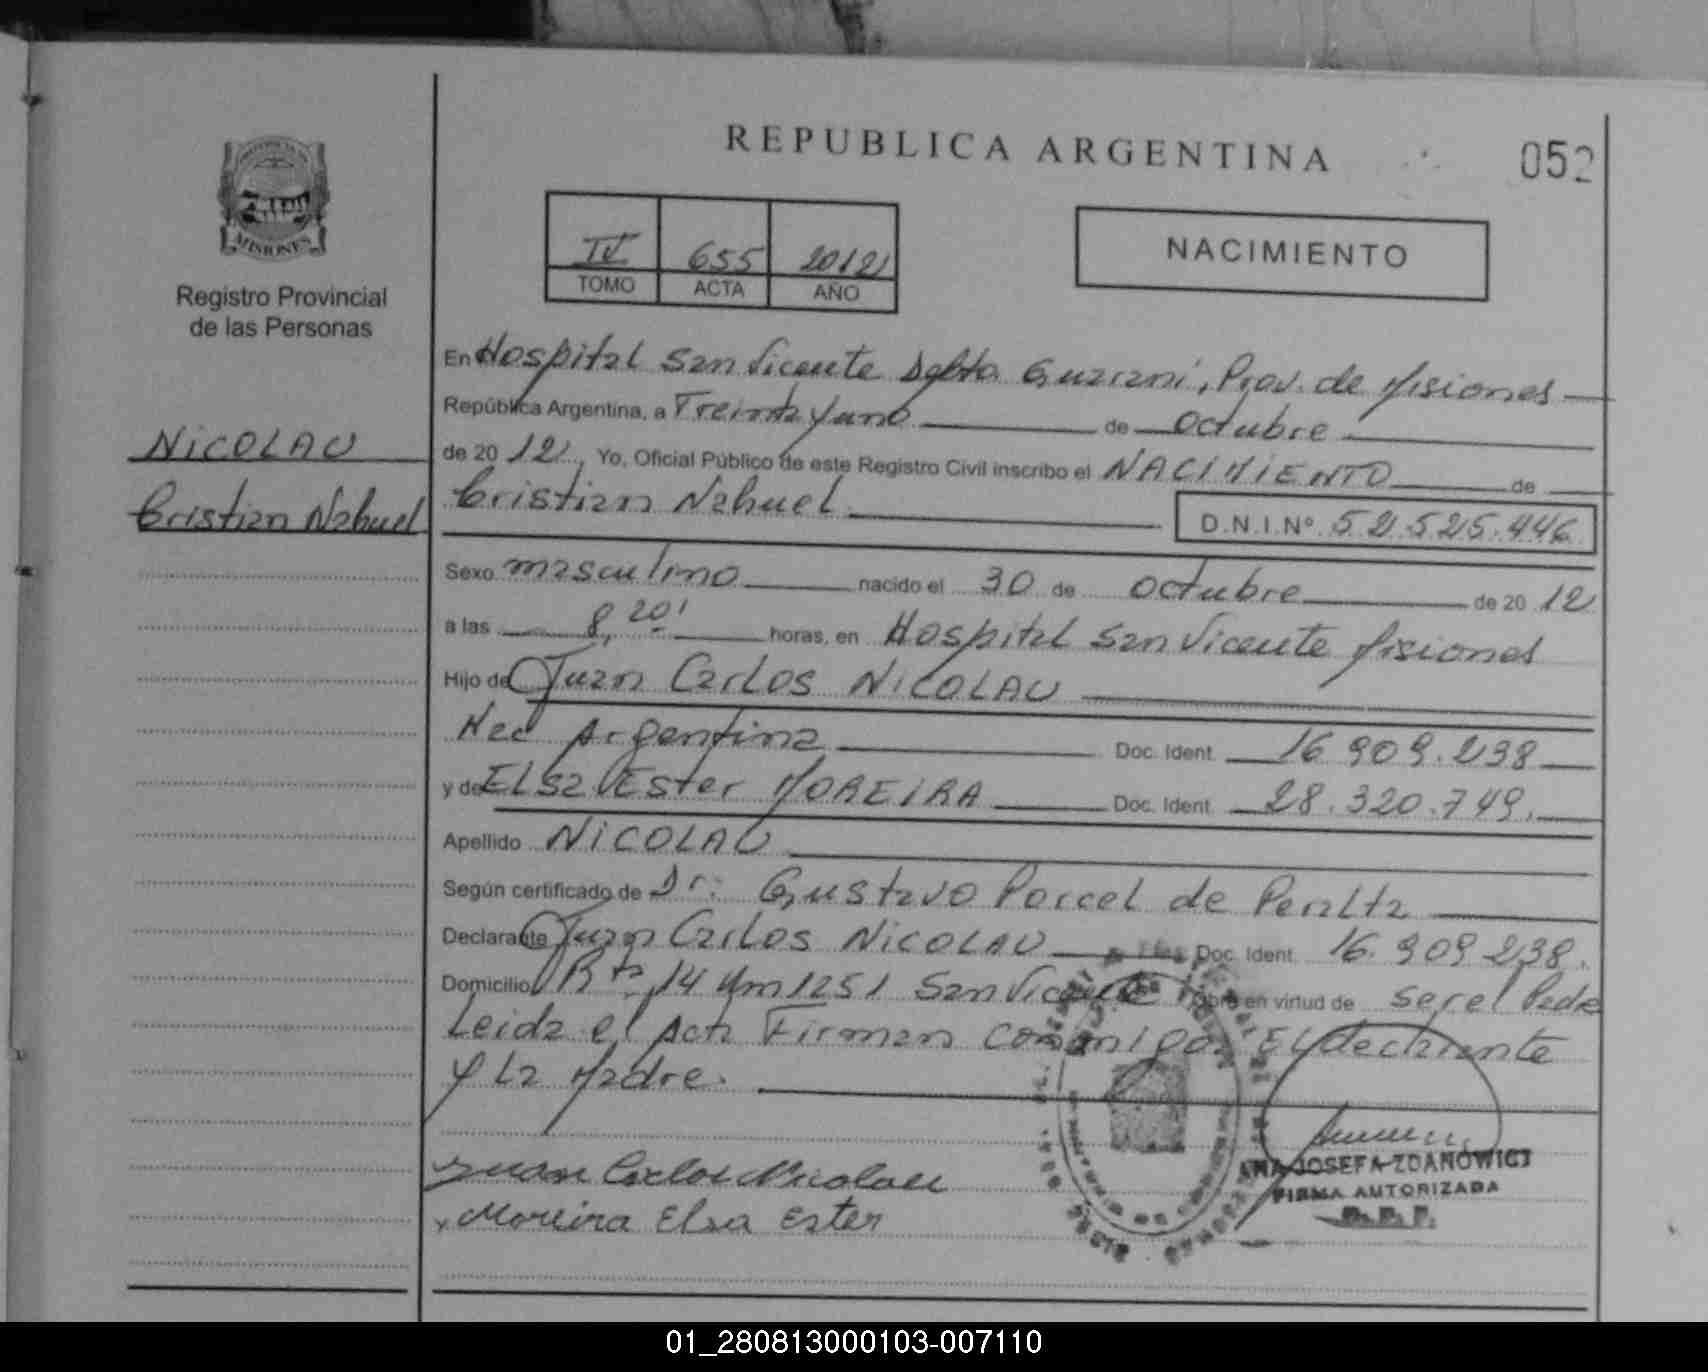 REPUBLICA ARGENTINA
052
MISIONES
Registro Provincial
de las Personas
IV 655 2012
TOMO ACTA AÑO
NACIMIENTO
NICOLAU
Cristian Nahuel
En Hospital San Vicente Dpto Guarani, Prov. de Misiones
República Argentina, a Treinta y uno de octubre
de 20 12, Yo, Oficial Público de este Registro Civil inscribo el NACIMIENTO de
Cristian Nahuel D.N.I.Nº 52.525.446
Sexo masculino nacido el 30 de octubre de 20 12
a las 8,20' horas, en Hospital San Vicente Misiones
Hijo de Juan Carlos NICOLAU
Nac Argentina Doc. Ident. 16.909.238
y de Elsa Ester MOREIRA Doc. Ident. 28.320.749.
Apellido NICOLAU
Según certificado de Dr: Gustavo Porcel de Peralta
Declarante Juan Carlos NICOLAU Doc. Ident. 16.909.238.
Domicilio Rta 14 Km 1251 San Vicente Obra en virtud de ser el Padre
Leida el Acta Firman conmigo El declarante
y La Madre.
Juan Carlos Nicolau
Moreira Elsa Ester
ANA JOSEFA ZDANOWICZ
FIRMA AUTORIZADA
01_280813000103-007110